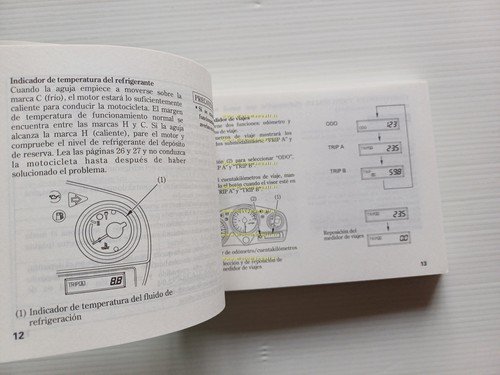 Indicador de temperatura del refrigerante
Cuando la aguja empiece a moverse sobre la
marca C (frío), el motor estará lo suficientemente
caliente para conducir la motocicleta. El margen
de temperatura de funcionamiento normal se
encuentra entre las marcas H y C. Si la aguja
alcanza la marca H (caliente), pare el motor y
compruebe el nivel de refrigerante del depósito
de reserva. Lea las páginas 26 y 27 y no conduzca
la motocicleta hasta después de haber
solucionado el problema.
(1)
TRIP
88
(1) Indicador de temperatura del fluido de
refrigeración
12
didor de viajes
dos funciones: odómetro y
de viaje.
de viaje mostrará los
"TRIP A" y
(2) para seleccionar "ODO",
"TRIP A" y "TRIP B".
cuentakilómetros de viaje, man-
el botón cuando el visor esté en
"TRIP A" y "TRIP B".
(2)
(1)
de odómetro/cuentakilómetros
lección y de reposición de
medidor de viajes
ODO
123
TRIP A
235
TRIP B
598
235
Reposición del
medidor de viajes
00
13